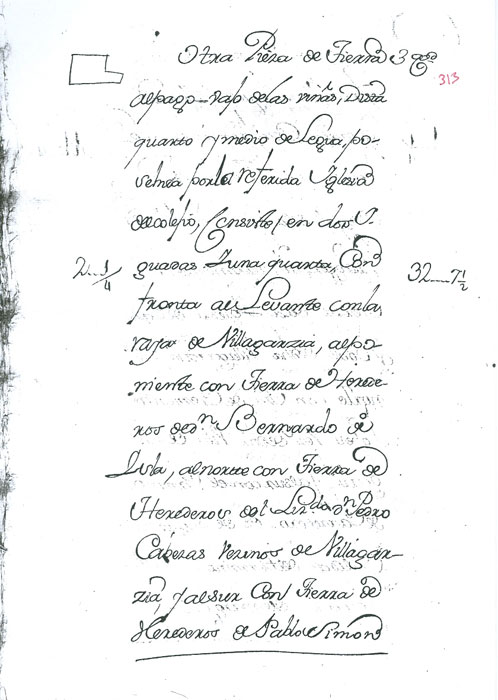 Otra Pieza de Tierra 3 qos
313
al pago vajo de las viñas, Dista
quarto y medio de Legua, po-
rehida por la referida Yglesia
de Colexio, Consiste en dos Y-
guadas y una quarta, Con
2..1/4
32....7 1/2
fronta al Levante con la
raya de Villagarzia, al po-
niente con Tierra de Herede-
ros de Dn Bernardo de
Lula, al norte con Tierra de
Herederos del Lizdo Dn Pedro
Cabezas Vezinos de Villagar-
zia, y al sur Con Tierra de
Herederos de Pablo Simon